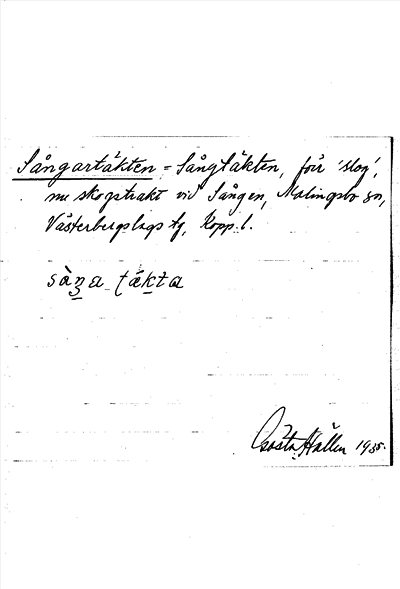 Sångartäkten = Sångtäkten, förr 'slog',
nu skogstrakt vid Sången, Malingsbo sn,
Västerbergslags tg, Kopp. l.
sàŋa tǽkta
Gösta Hallen 1935.